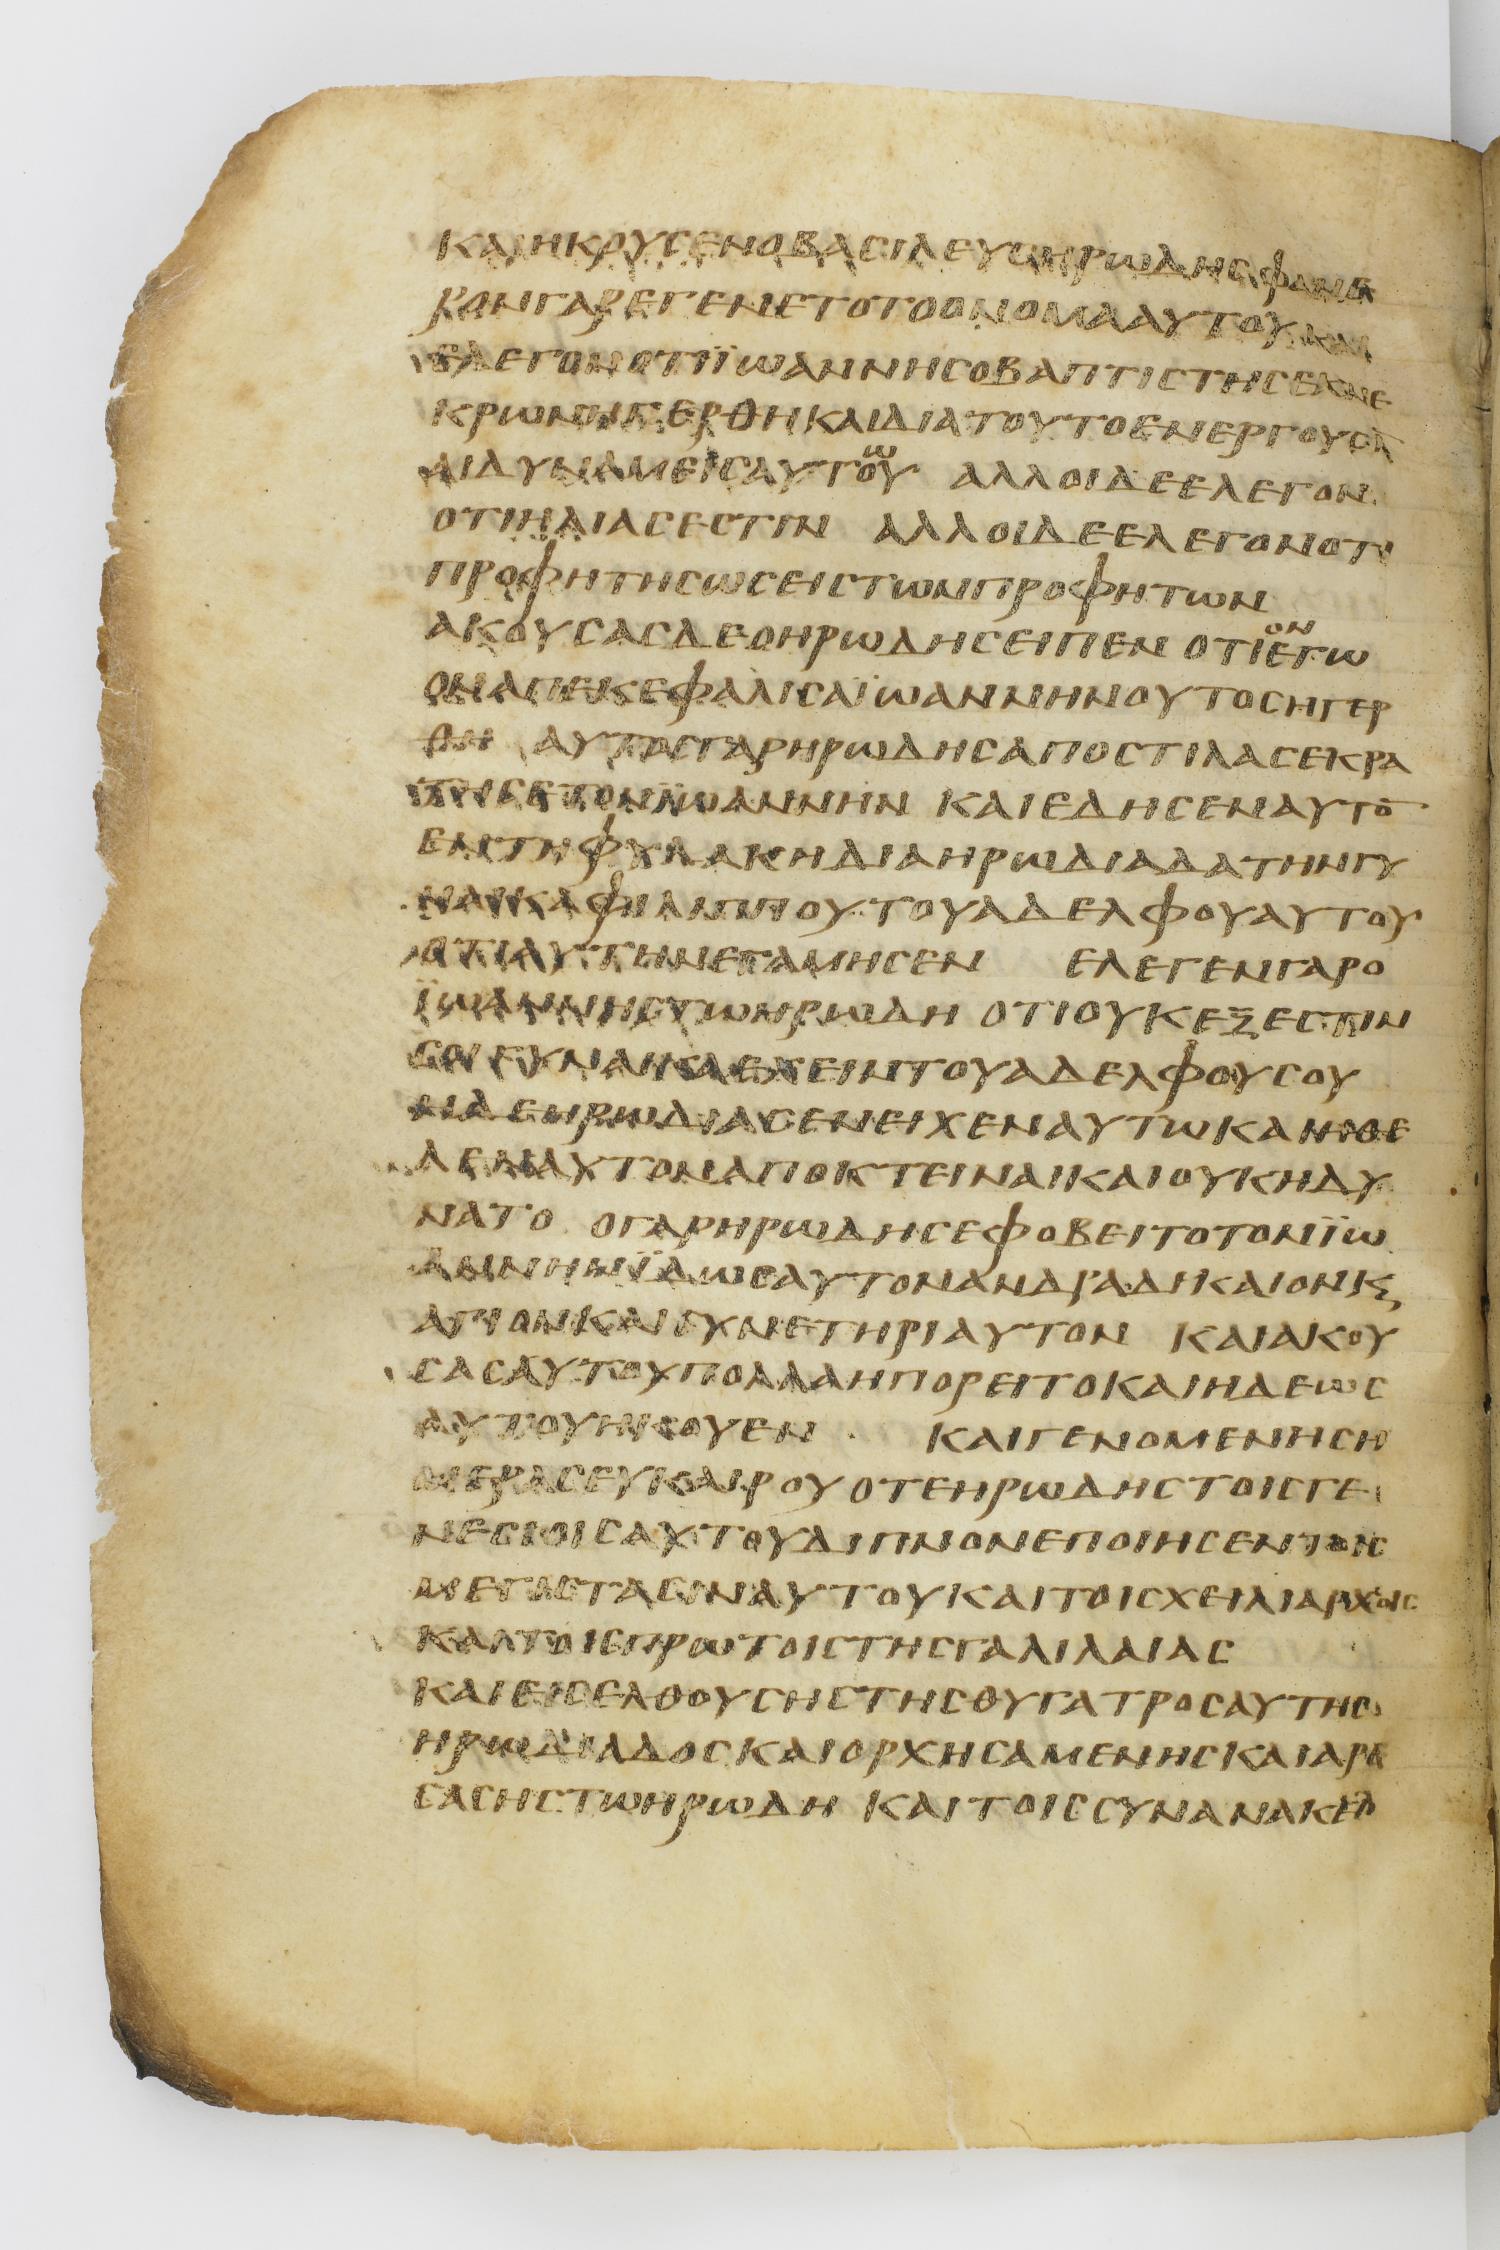 ΚΑΙΗΚΟΥΣΕΝΟΒΑΣΙΛΕΥΣΗΡΩΔΗΣΦΑΝΕ
ΡΟΝΓΑΡΕΓΕΝΕΤΟΤΟΟΝΟΜΑΑΥΤΟΥΚΑΙ
ΕΛΕΓΟΝΟΤΙΪΩΑΝΝΗΣΟΒΑΠΤΙΣΤΗΣΕΚΝΕ
ΚΡΩΝΗΓΕΡΘΗΚΑΙΔΙΑΤΟΥΤΟΕΝΕΡΓΟΥΣΙ
ΑΙΔΥΝΑΜΕΙΣΑΥΤΟΥ ΑΛΛΟΙΔΕΕΛΕΓΟΝ
ΟΤΙΗΛΙΑΣΕΣΤΙΝ ΑΛΛΟΙΔΕΕΛΕΓΟΝΟΤΙ
ΠΡΟΦΗΤΗΣΩΣΕΙΣΤΩΝΠΡΟΦΗΤΩΝ
ΑΚΟΥΣΑΣΔΕΟΗΡΩΔΗΣΕΙΠΕΝ ΟΤΙΟΝΕΓΩ
ΟΝΑΠΕΚΕΦΑΛΙΣΑΪΩΑΝΝΗΝΟΥΤΟΣΗΓΕΡ
ΘΗ ΑΥΤΟΣΓΑΡΗΡΩΔΗΣΑΠΟΣΤΙΛΑΣΕΚΡΑ
ΤΗΣΕΤΟΝΪΩΑΝΝΗΝ ΚΑΙΕΔΗΣΕΝΑΥΤΟ̄
ΕΝΤΗΦΥΛΑΚΗΔΙΑΗΡΩΔΙΑΔΑΤΗΝΓΥ
ΝΑΙΚΑΦΙΛΙΠΠΟΥ ΤΟΥΑΔΕΛΦΟΥΑΥΤΟΥ
ΟΤΙΑΥΤΗΝΕΓΑΜΗΣΕΝ ΕΛΕΓΕΝΓΑΡΟ
ΪΩΑΝΝΗΣΤΩΗΡΩΔΗ ΟΤΙΟΥΚΕΞΕΣΤΙΝ
ΣΟΙΓΥΝΑΙΚΑΕΧΕΙΝΤΟΥΑΔΕΛΦΟΥΣΟΥ
ΗΔΕΗΡΩΔΙΑΣΕΝΕΙΧΕΝΑΥΤΩΚΑΙΗΘΕ
ΛΕΝΑΥΤΟΝΑΠΟΚΤΕΙΝΑΙΚΑΙΟΥΚΗΔΥ
ΝΑΤΟ ΟΓΑΡΗΡΩΔΗΣΕΦΟΒΕΙΤΟΤΟΝΪΩ
ΑΝΝΗΝΪΔΩΣΑΥΤΟΝΑΝΔΡΑΔΙΚΑΙΟΝΚ
ΑΓΙΟΝΚΑΙΣΥΝΕΤΗΡΙΑΥΤΟΝ ΚΑΙΑΚΟΥ
ΣΑΣΑΥΤΟΥΠΟΛΛΑΗΠΟΡΕΙΤΟΚΑΙΗΔΕΩΣ
ΑΥΤΟΥΗΚΟΥΕΝ ΚΑΙΓΕΝΟΜΕΝΗΣΗ
ΜΕΡΑΣΕΥΚΑΙΡΟΥΟΤΕΗΡΩΔΗΣΤΟΙΣΓΕ
ΝΕΣΙΟΙΣΑΥΤΟΥΔΙΠΝΟΝΕΠΟΙΗΣΕΝΤΟΙΣ
ΜΕΓΙΣΤΑΣΙΝΑΥΤΟΥΚΑΙΤΟΙΣΧΕΙΛΙΑΡΧΟΙΣ
ΚΑΙΤΟΙΣΠΡΩΤΟΙΣΤΗΣΓΑΛΙΛΑΙΑΣ
ΚΑΙΕΙΣΕΛΘΟΥΣΗΣΤΗΣΘΥΓΑΤΡΟΣΑΥΤΗΣ
ΗΡΩΔΙΑΔΟΣΚΑΙΟΡΧΗΣΑΜΕΝΗΣΚΑΙΑΡΕ
ΣΑΣΗΣΤΩΗΡΩΔΗ ΚΑΙΤΟΙΣΣΥΝΑΝΑΚΕΙ